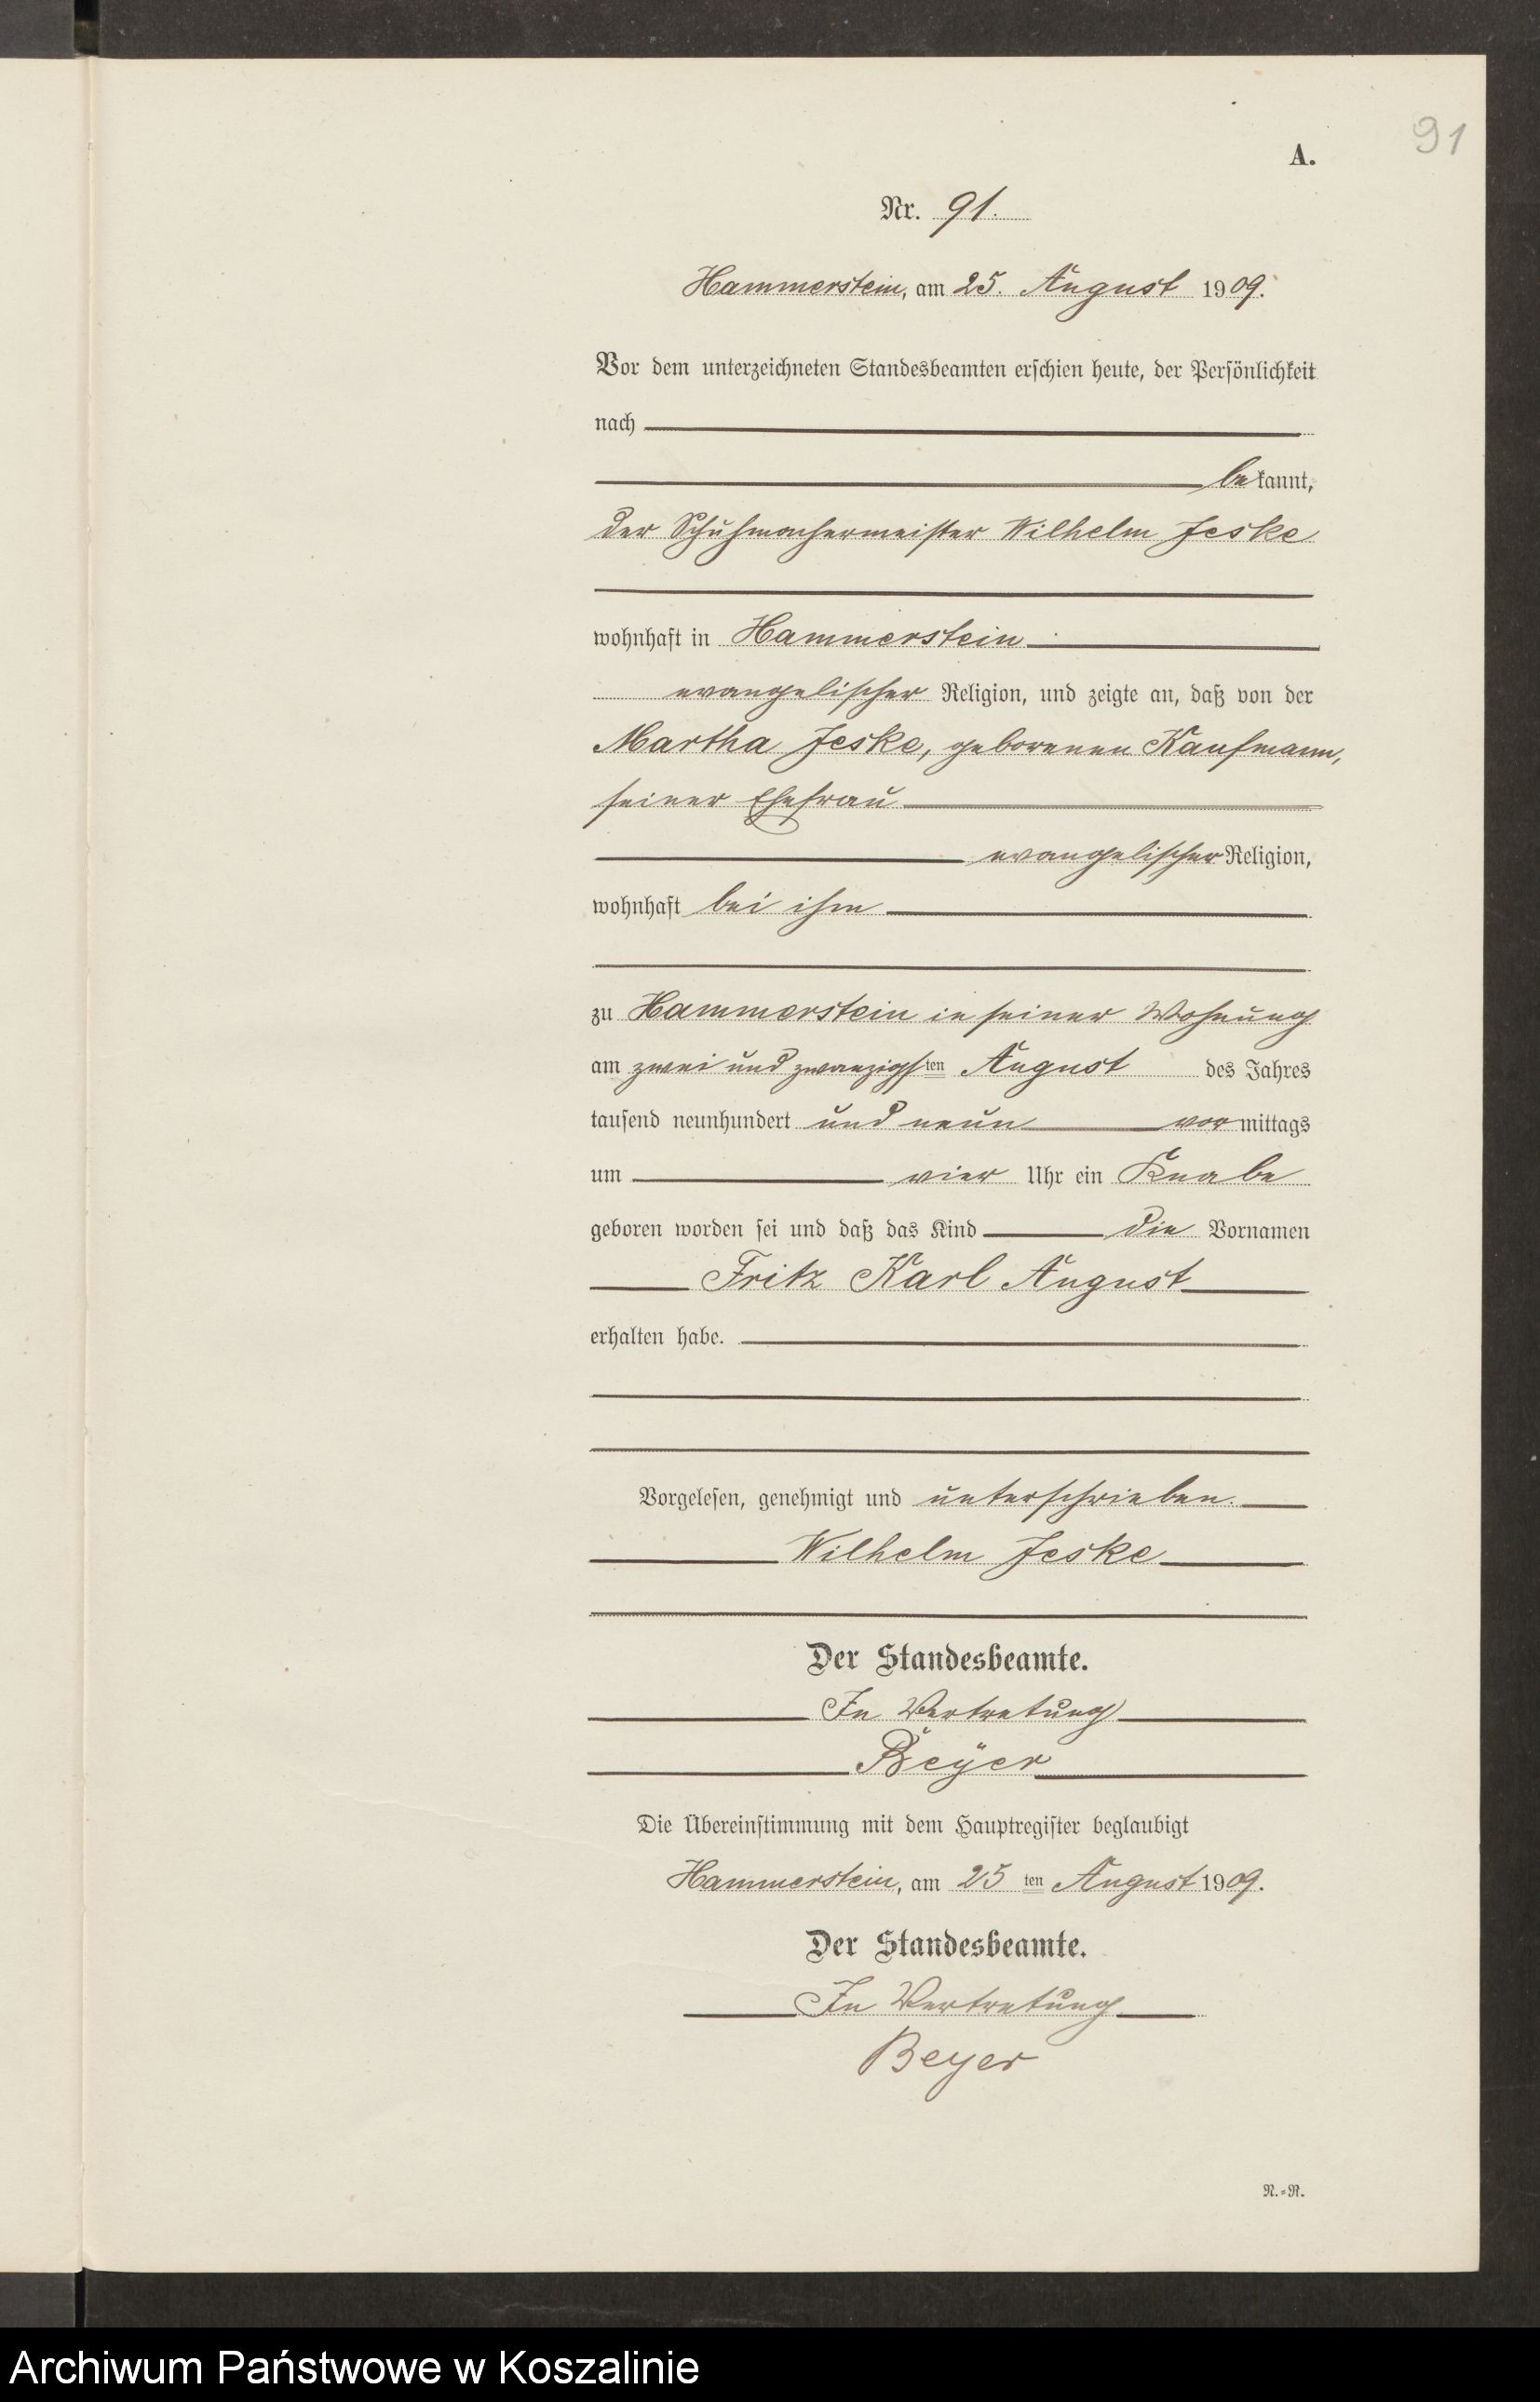 91
A.
Nr. 91.
Hammerstein, am 25. August 1909.
Vor dem unterzeichneten Standesbeamten erschien heute, der Persönlichkeit
nach
bekannt,
der Schuhmachermeister Wilhelm Jeske
wohnhaft in Hammerstein
evangelischer Religion, und zeigte an, daß von der
Martha Jeske, geborenen Kaufmann,
seiner Ehefrau
evangelischer Religion,
wohnhaft bei ihm
zu Hammerstein in seiner Wohnung
am zwei und zwanzigsten August des Jahres
tausend neunhundert und neun vormittags
um vier Uhr ein Knabe
geboren worden sei und daß das Kind die Vornamen
Fritz Karl August
erhalten habe.
Vorgelesen, genehmigt und unterschrieben.
Wilhelm Jeske
Der Standesbeamte.
In Vertretung
Beyer
Die Übereinstimmung mit dem Hauptregister beglaubigt
Hammerstein, am 25 ten August 1909.
Der Standesbeamte.
In Vertretung
Beyer
N.=R.
Archiwum Państwowe w Koszalinie